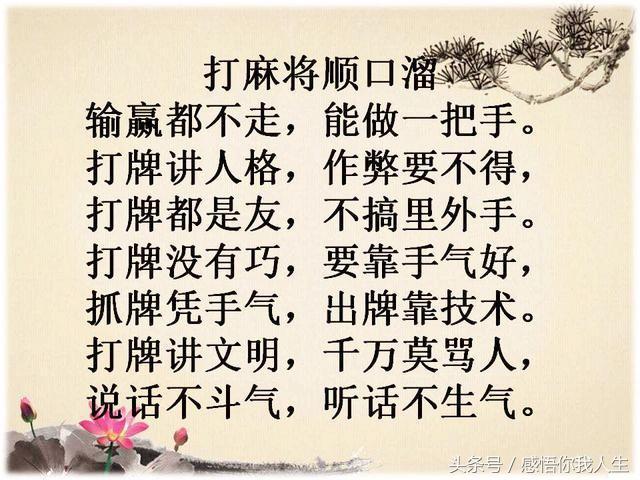 打麻将顺口溜
输赢都不走，能做一把手。
打牌讲人格，作弊要不得，
打牌都是友，不搞里外手。
打牌没有巧，要靠手气好，
抓牌凭手气，出牌靠技术。
打牌讲文明，千万莫骂人，
说话不斗气，听话不生气。
头条号／感悟你我人生